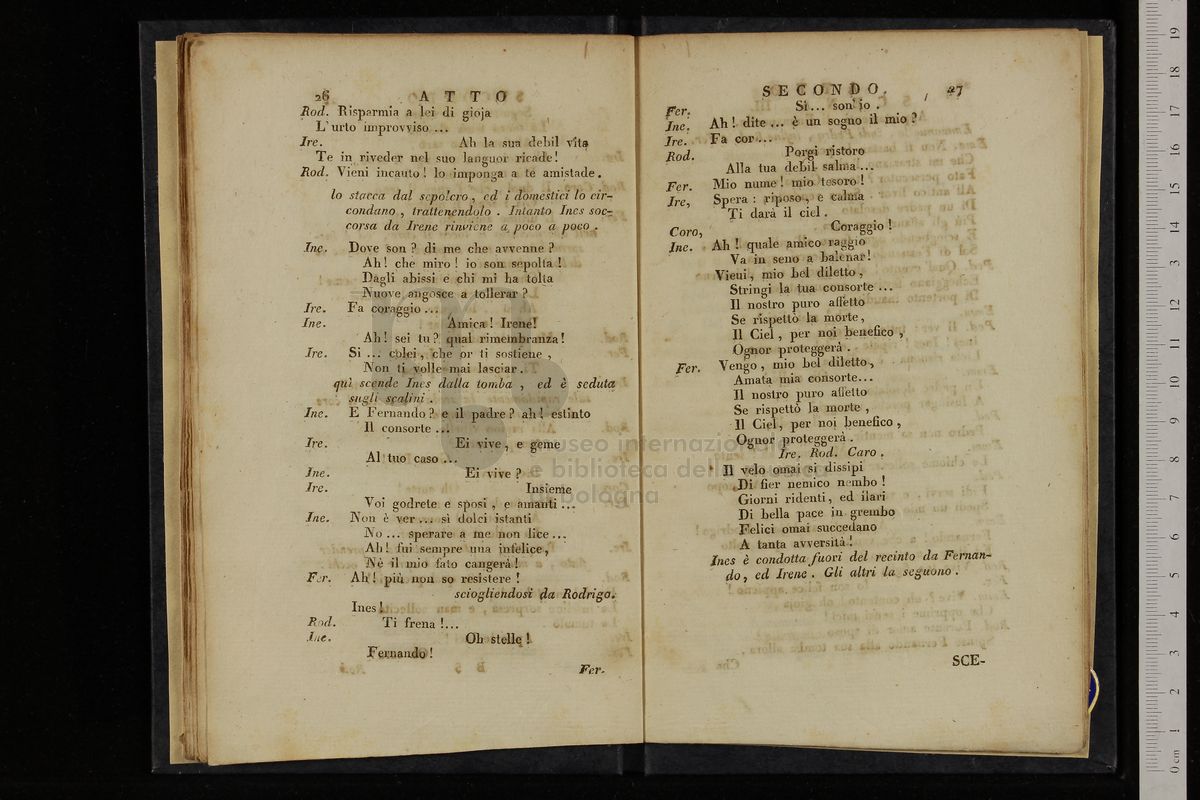 26 ATTO
Rod. Risparmia a lei di gioja
L'urto improvviso ...
Ire. Ah la sua debil vita
Te in riveder nel suo languor ricade!
Rod. Vieni incauto! lo imponga a te amistade.
lo stacca dal sepolcro, ed i domestici lo cir-
condano, trattenendolo. Intanto Ines soc-
corsa da Irene rinviene a poco a poco.
Ine. Dove son? di me che avvenne?
Ah! che miro! io son sepolta!
Dagli abissi e chi mi ha tolta
Nuove angosce a tollerar?
Ire. Fa coraggio ...
Ine. Amica! Irene!
Ah! sei tu? qual rimembranza!
Ire. Si ... colei, che or ti sostiene,
Non ti volle mai lasciar.
quì scende Ines dalla tomba, ed è seduta
sugli scalini.
Ine. E Fernando? e il padre? ah! estinto
Il consorte ...
Ire. Ei vive, e geme
Al tuo caso ...
Ine. Ei vive?
Ire. Insieme
Voi godrete e sposi, e amanti ...
Ine. Non è ver ... sì dolci istanti
No ... sperare a me non lice ...
Ah! fui sempre una infelice,
Nè il mio fato cangerà!
Fer. Ah! più non so resistere!
sciogliendosi da Rodrigo.
Ines!
Rod. Ti frena!...
Ine. Oh stelle!
Fernando!
Fer.
SECONDO. 27
Fer. Si... son io.
Ine. Ah! dite ... è un sogno il mio?
Ire. Fa cor ...
Rod. Porgi ristoro
Alla tua debil salma ...
Fer. Mio nume! mio tesoro!
Ire, Spera: riposo, e calma
Ti darà il ciel.
Coro, Coraggio!
Ine. Ah! quale amico raggio
Va in seno a balenar!
Vieni, mio bel diletto,
Stringi la tua consorte ...
Il nostro puro affetto
Se rispettò la morte,
Il Ciel, per noi benefico,
Ognor proteggerà.
Fer. Vengo, mio bel diletto,
Amata mia consorte...
Il nostro puro affetto
Se rispettò la morte,
Il Ciel, per noi benefico,
Ognor proteggerà.
Ire. Rod. Caro.
Il velo omai si dissipi
Di fier nemico nembo!
Giorni ridenti, ed ilari
Di bella pace in grembo
Felici omai succedano
A tanta avversità!
Ines è condotta fuori del recinto da Fernan-
do, ed Irene. Gli altri la seguono.
SCE-
museo internazionale
e biblioteca della
bologna
0 cm 1 2 3 4 5 6 7 8 9 10 11 12 13 14 15 16 17 18 19